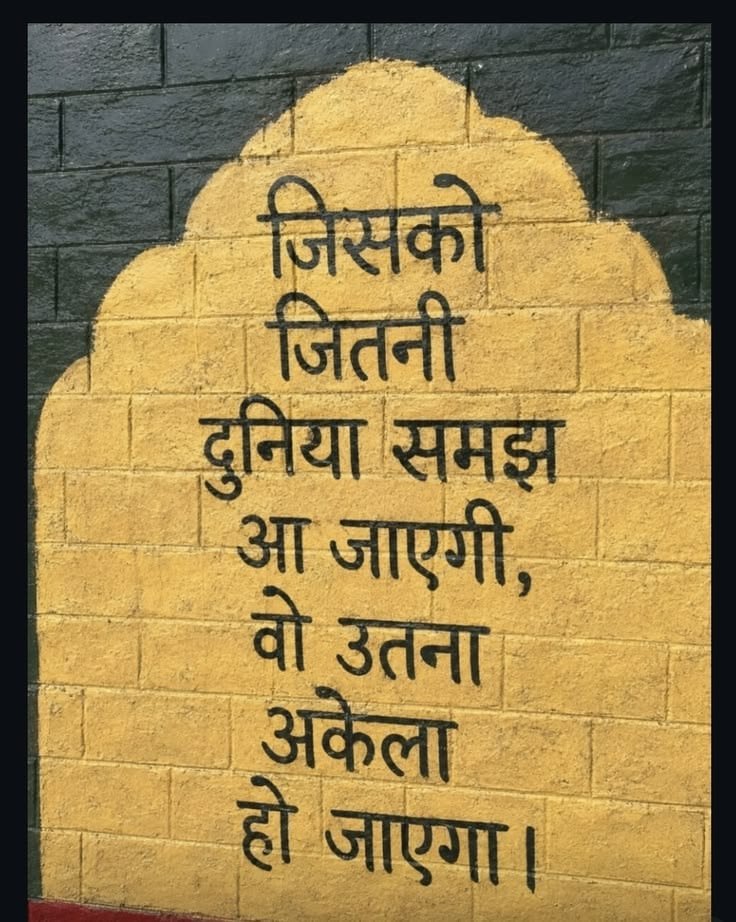 जिसको
जितनी
दुनिया समझ
आ जाएगी,
वो उतना
अकेला
हो जाएगा।